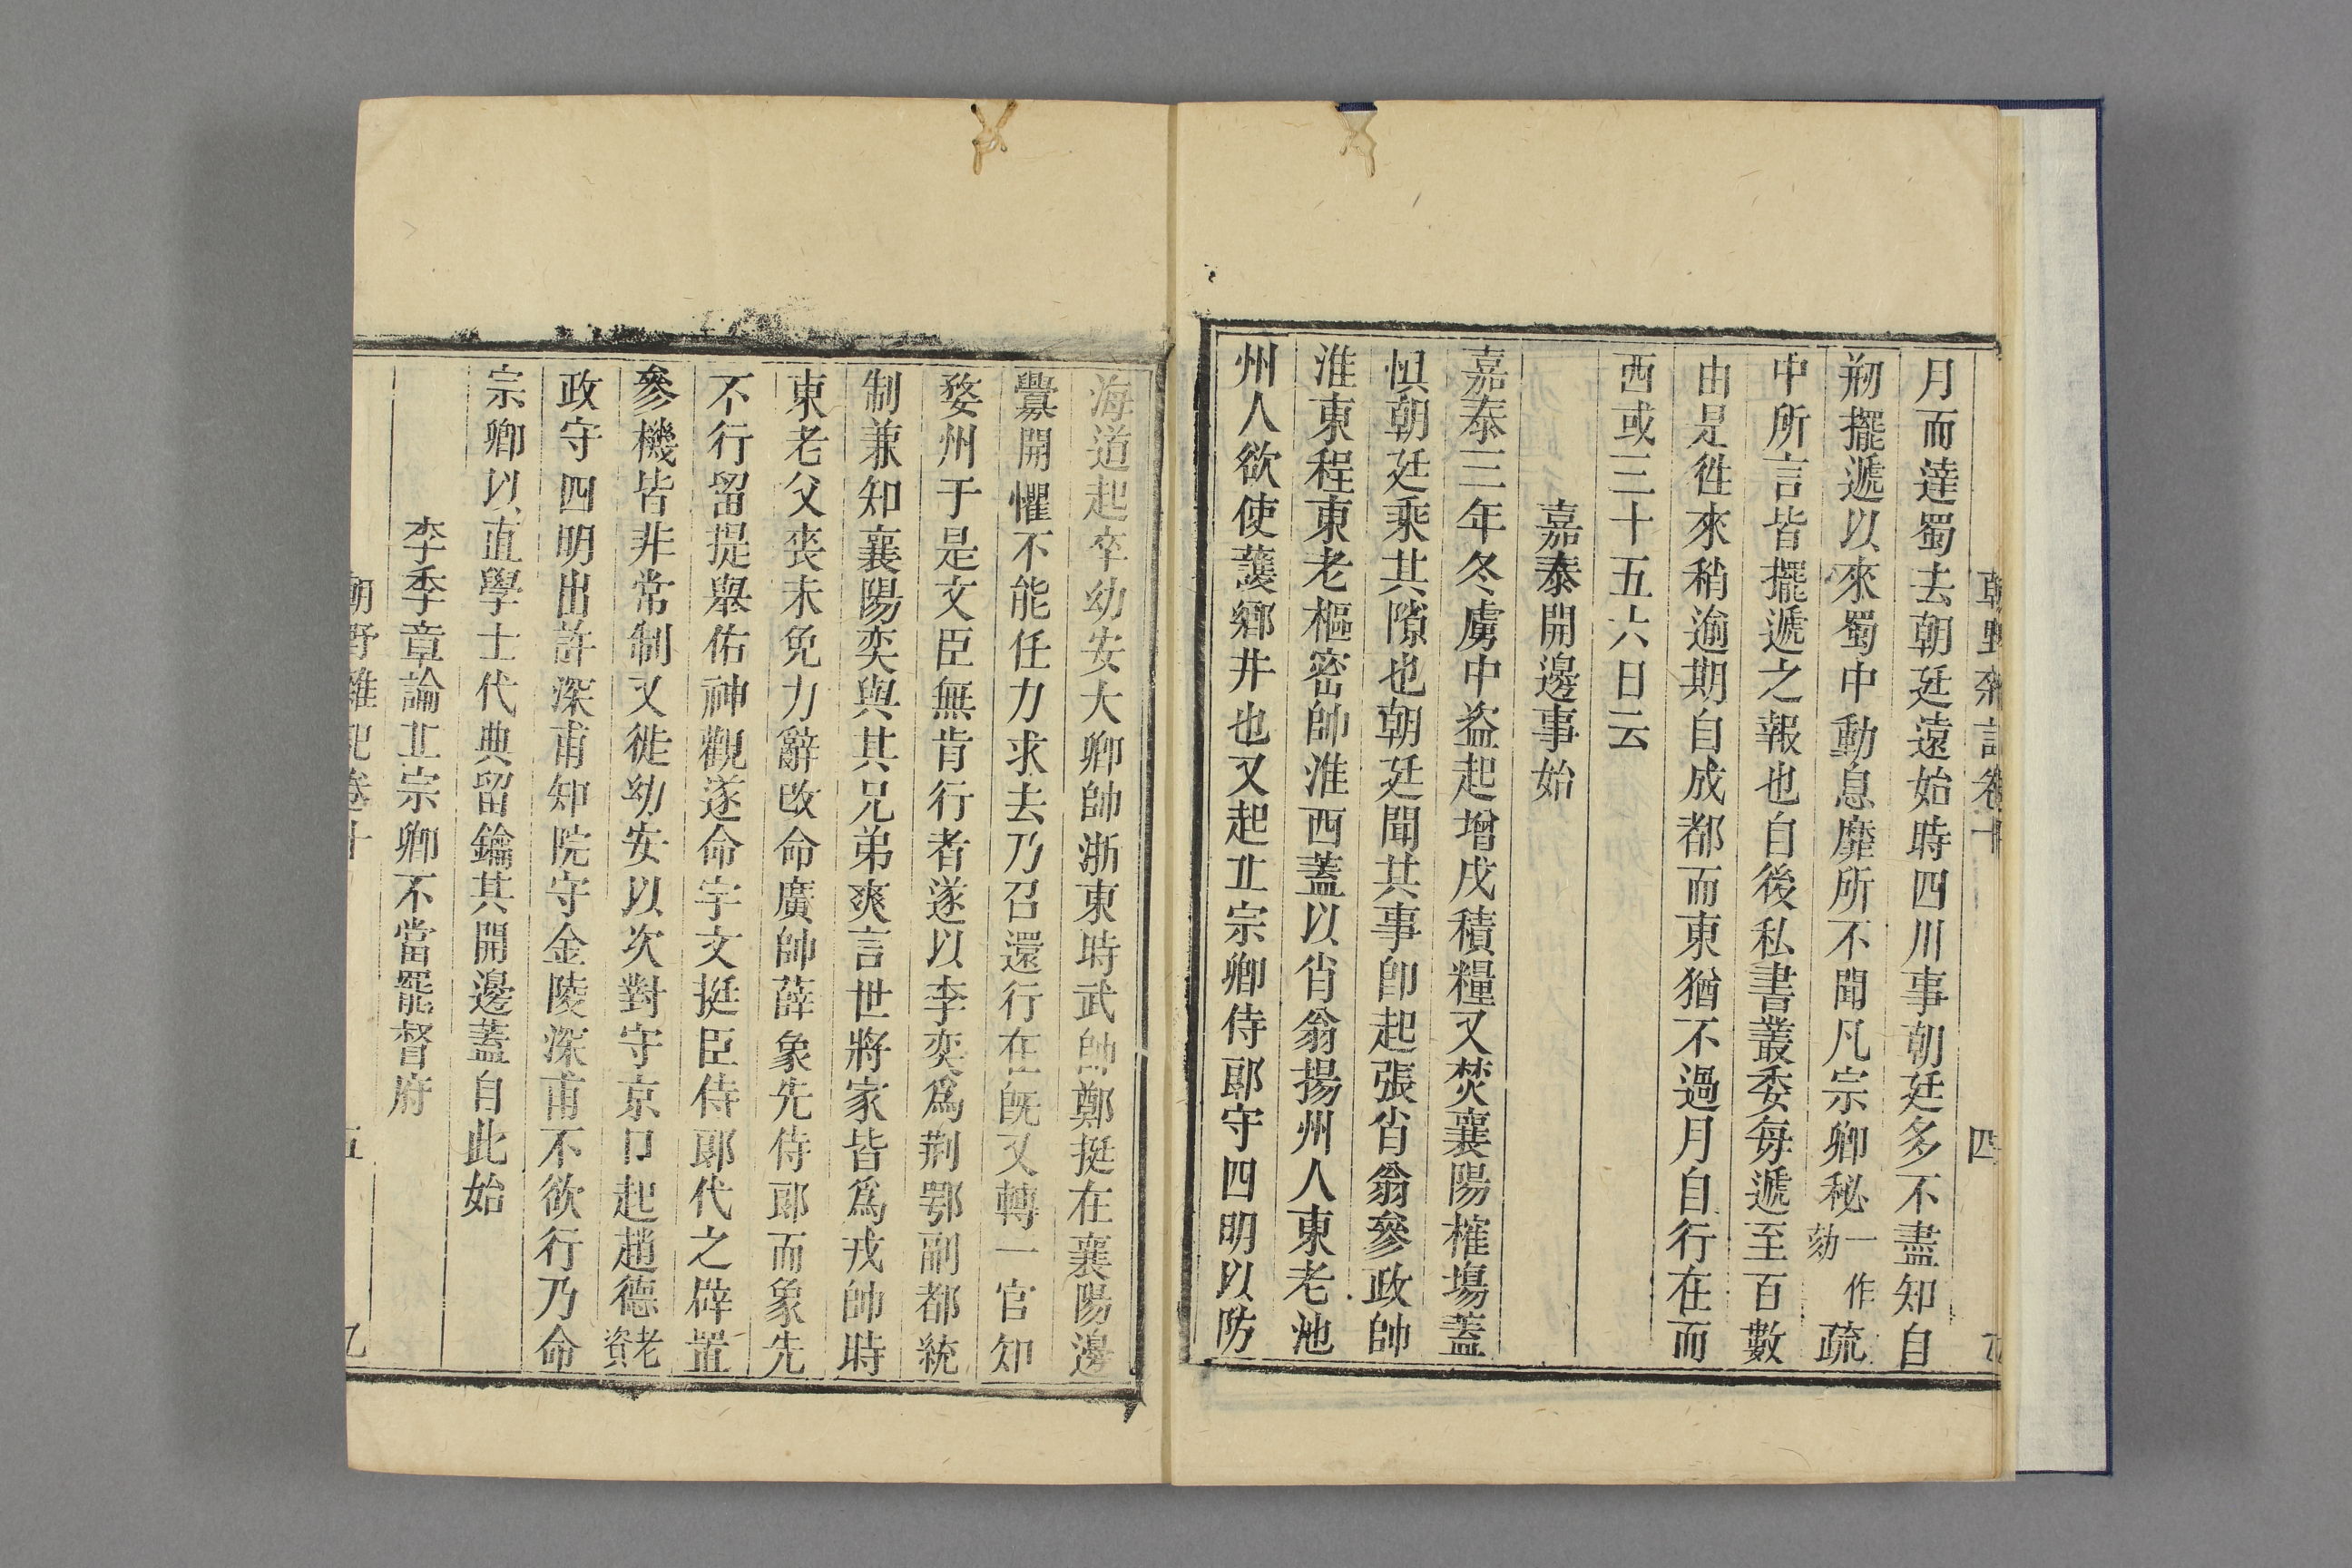 朝野杂記卷十　四　乙
月而達蜀去朝廷遠始時四川事朝廷多不盡知自
剏擺遞以來蜀中動息靡所不聞凡宗卿秘一作劾疏
中所言皆擺遞之報也自後私書叢委每遞至百數
由是徃來稍逾期自成都而東猶不過月自行在而
西或三十五六日云
嘉泰開邊事始
嘉泰三年冬虜中盗起增戍積糧又焚襄陽榷塲蓋
惧朝廷乘其隙也朝廷聞其事卽起張肖翁參政帥
淮東程東老樞密帥淮西蓋以肖翁揚州人東老池
州人欲使護鄉井也又起丘宗卿侍郎守四明以防
海道起卒幼安大卿帥浙東時武帥鄭挺在襄陽邊
釁開懼不能任力求去乃召還行在旣又轉一官知
婺州于是文臣無肯行者遂以李奕爲荆鄂副都統
制兼知襄陽奕與其兄弟爽言世將家皆爲戎帥時
東老父丧未免力辭改命廣帥薛象先侍郎而象先
不行留提舉佑神觀遂命宇文挺臣侍郎代之辟置
參機皆非常制又徙幼安以次對守京口起趙德老資
政守四明出許深甫知院守金陵深甫不欲行乃命
宗卿以直學士代典留鑰其開邊蓋自此始
李季章論丘宗卿不當罷督府
朝野雜記卷十　五　乙